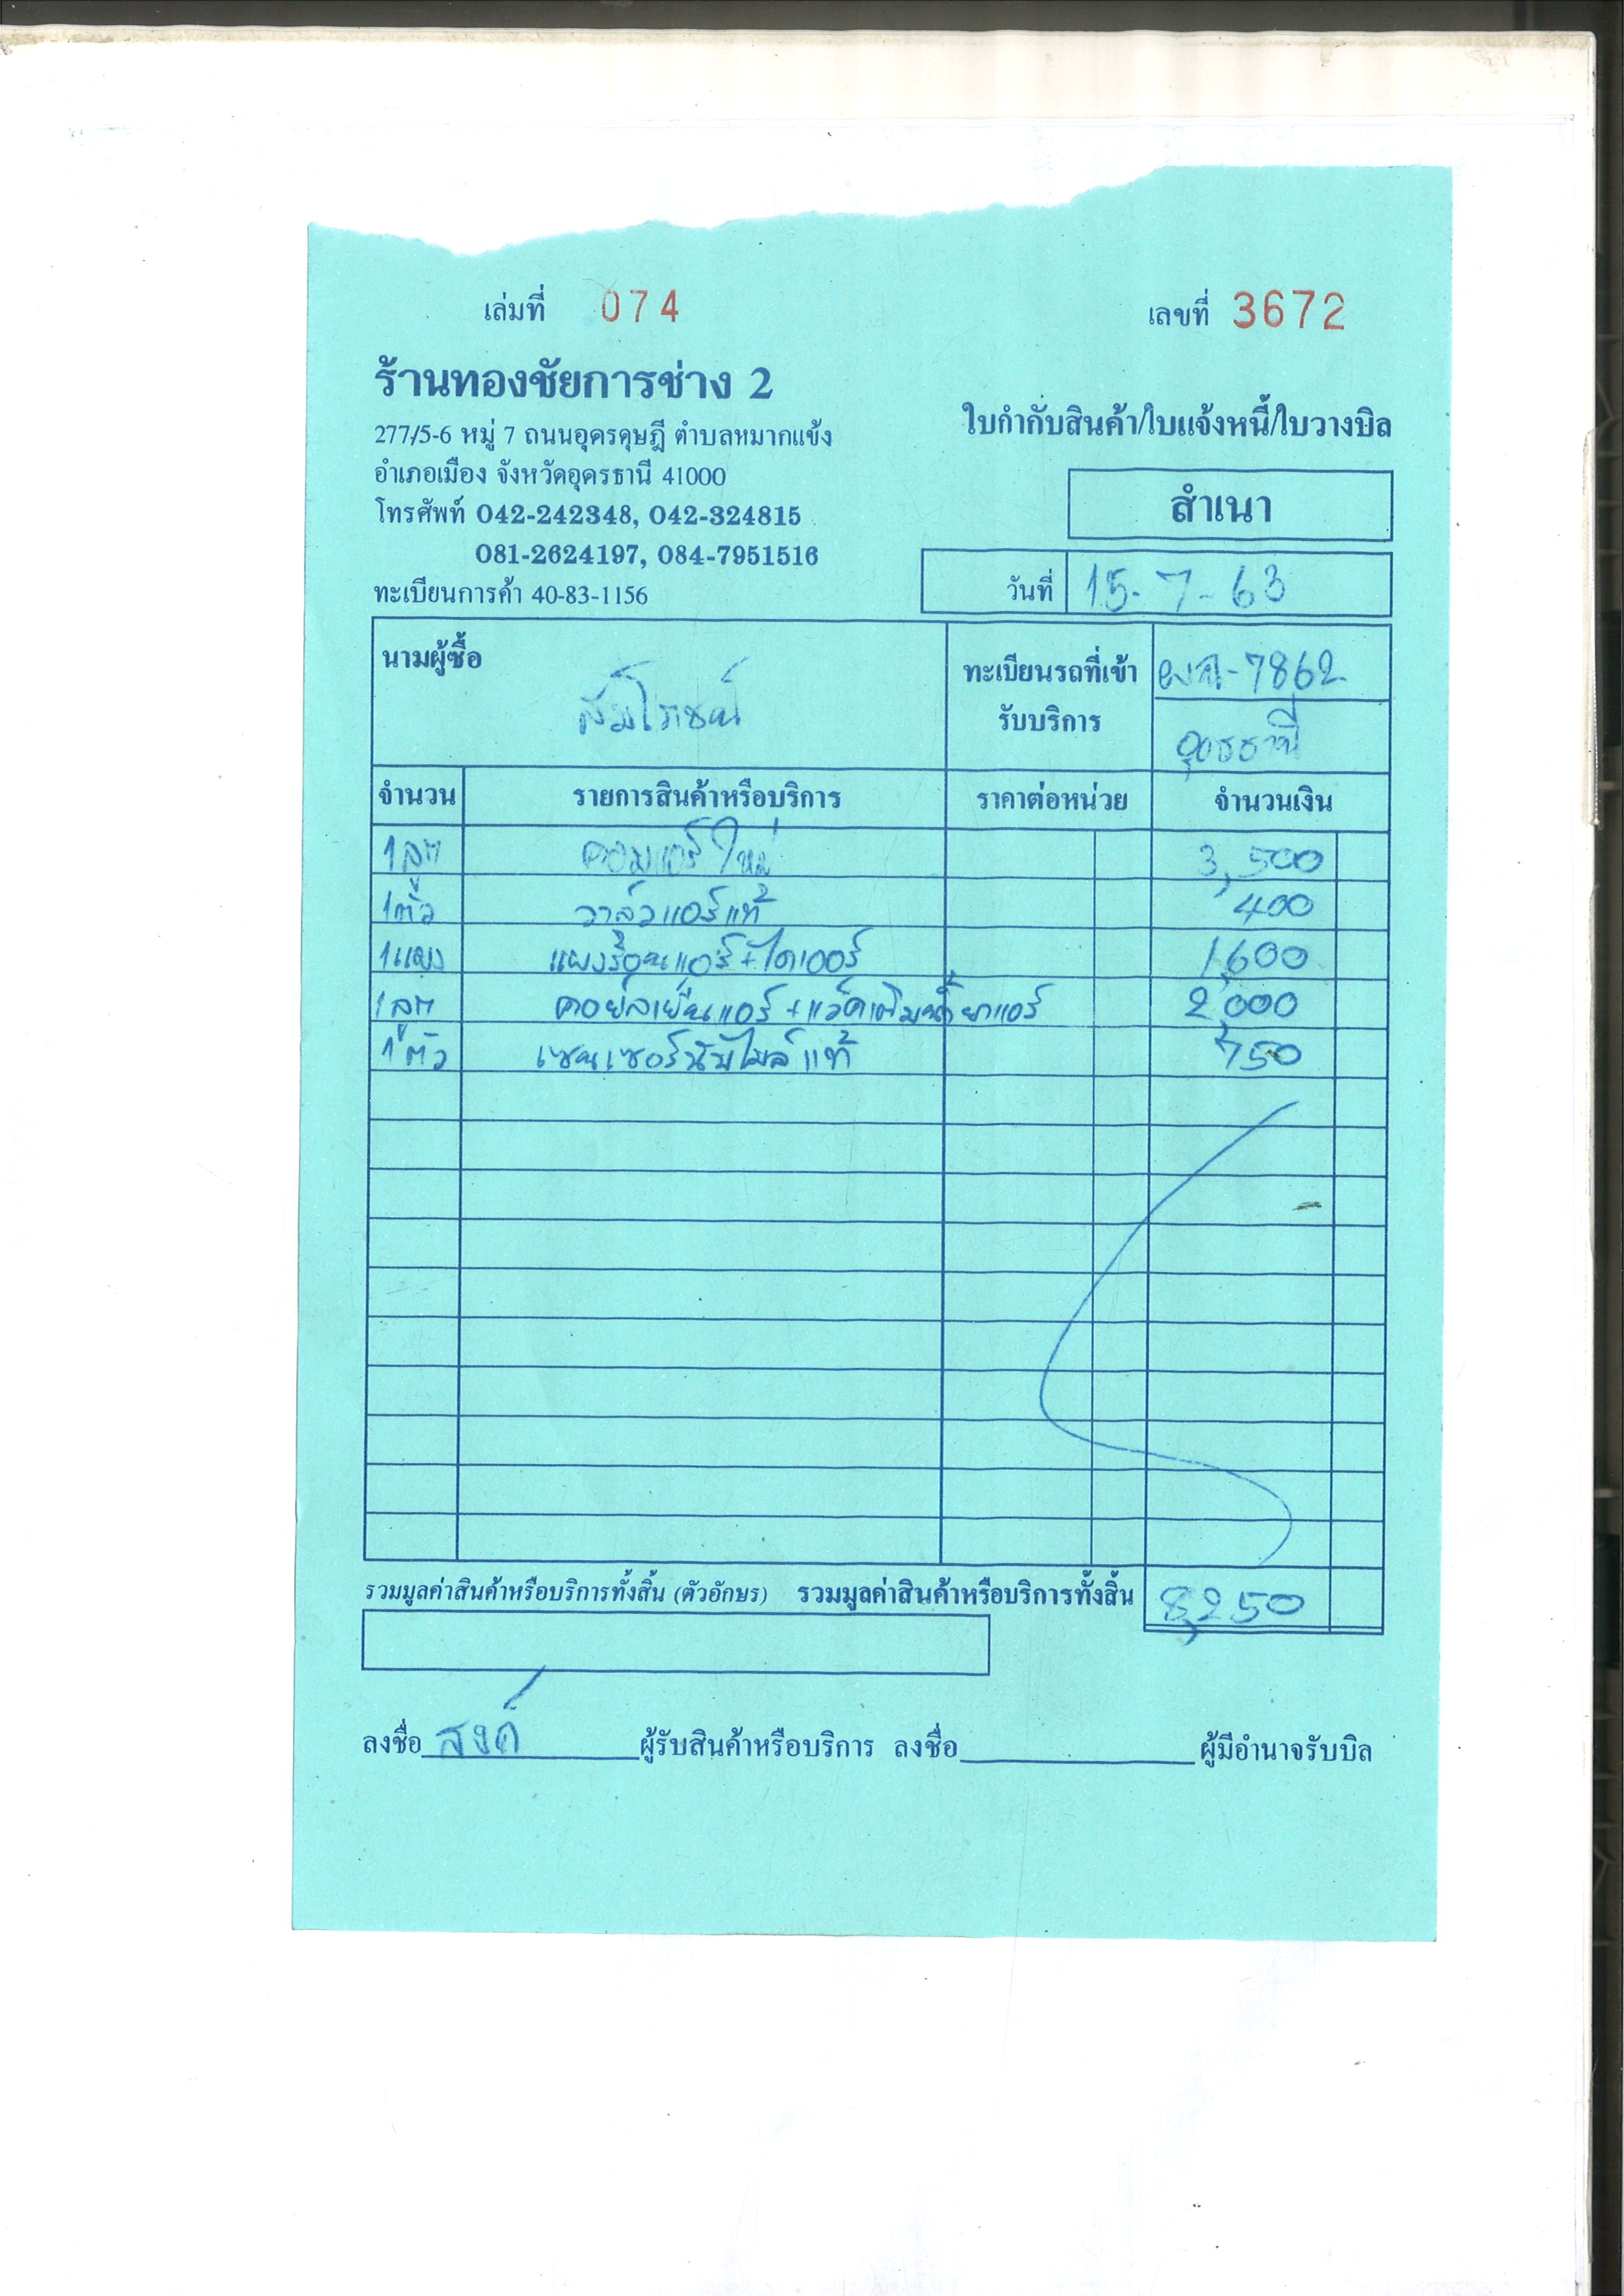 เล่มที่ 074 เลขที่ 3672
ร้านทองชัยการช่าง 2
277/5-6 หมู่ 7 ถนนอุดรดุษฎี ตำบลหมากแข้ง
ใบกำกับสินค้า/ใบแจ้งหนี้/ใบวางบิล
อำเภอเมือง จังหวัดอุดรธานี 41000
โทรศัพท์ 042-242348, 042-324815
สำเนา
081-2624197, 084-7951516
ทะเบียนการค้า 40-83-1156
วันที่ 15-7-63
นามผู้ซื้อ
ทะเบียนรถที่เข้า -7862
รับบริการ
จำนวน รายการสินค้าหรือบริการ ราคาต่อหน่วย จำนวนเงิน
1ลูก คอมแอร์ใหม่ 3,500
1ตัว วาล์วแอร์แท้ 400
1แผง แผงร้อนแอร์+ไดเออร์ 1,600
1ลูก คอย์ลเย็นแอร์+แว็คเติมน้ำยาแอร์ 2,000
1ตัว เซนเซอร์นับไมล์แท้ 750
รวมมูลค่าสินค้าหรือบริการทั้งสิ้น (ตัวอักษร) รวมมูลค่าสินค้าหรือบริการทั้งสิ้น 8,250
ลงชื่อ ผู้รับสินค้าหรือบริการ ลงชื่อ ผู้มีอำนาจรับบิล